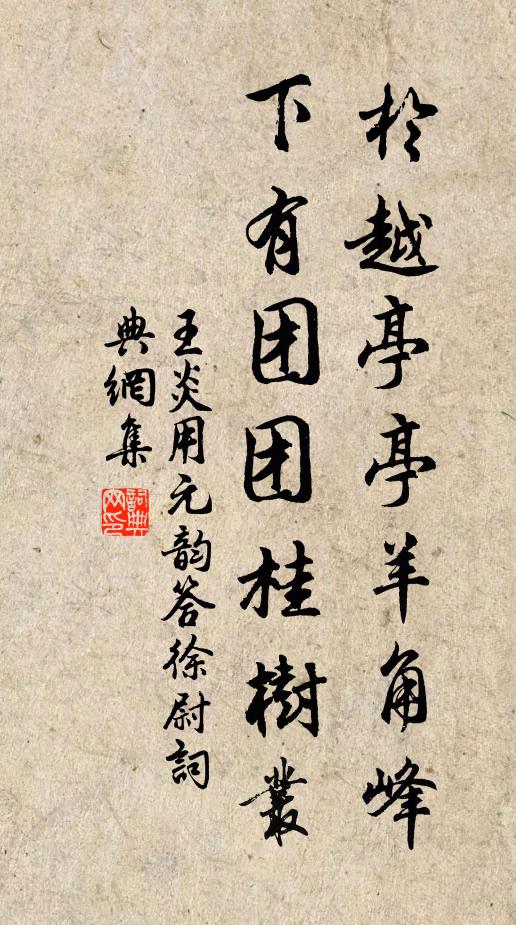 於越亭亭羊角峰
下有团团桂樹叢
王炎用元韵答徐尉詞
典網集
詞典网印